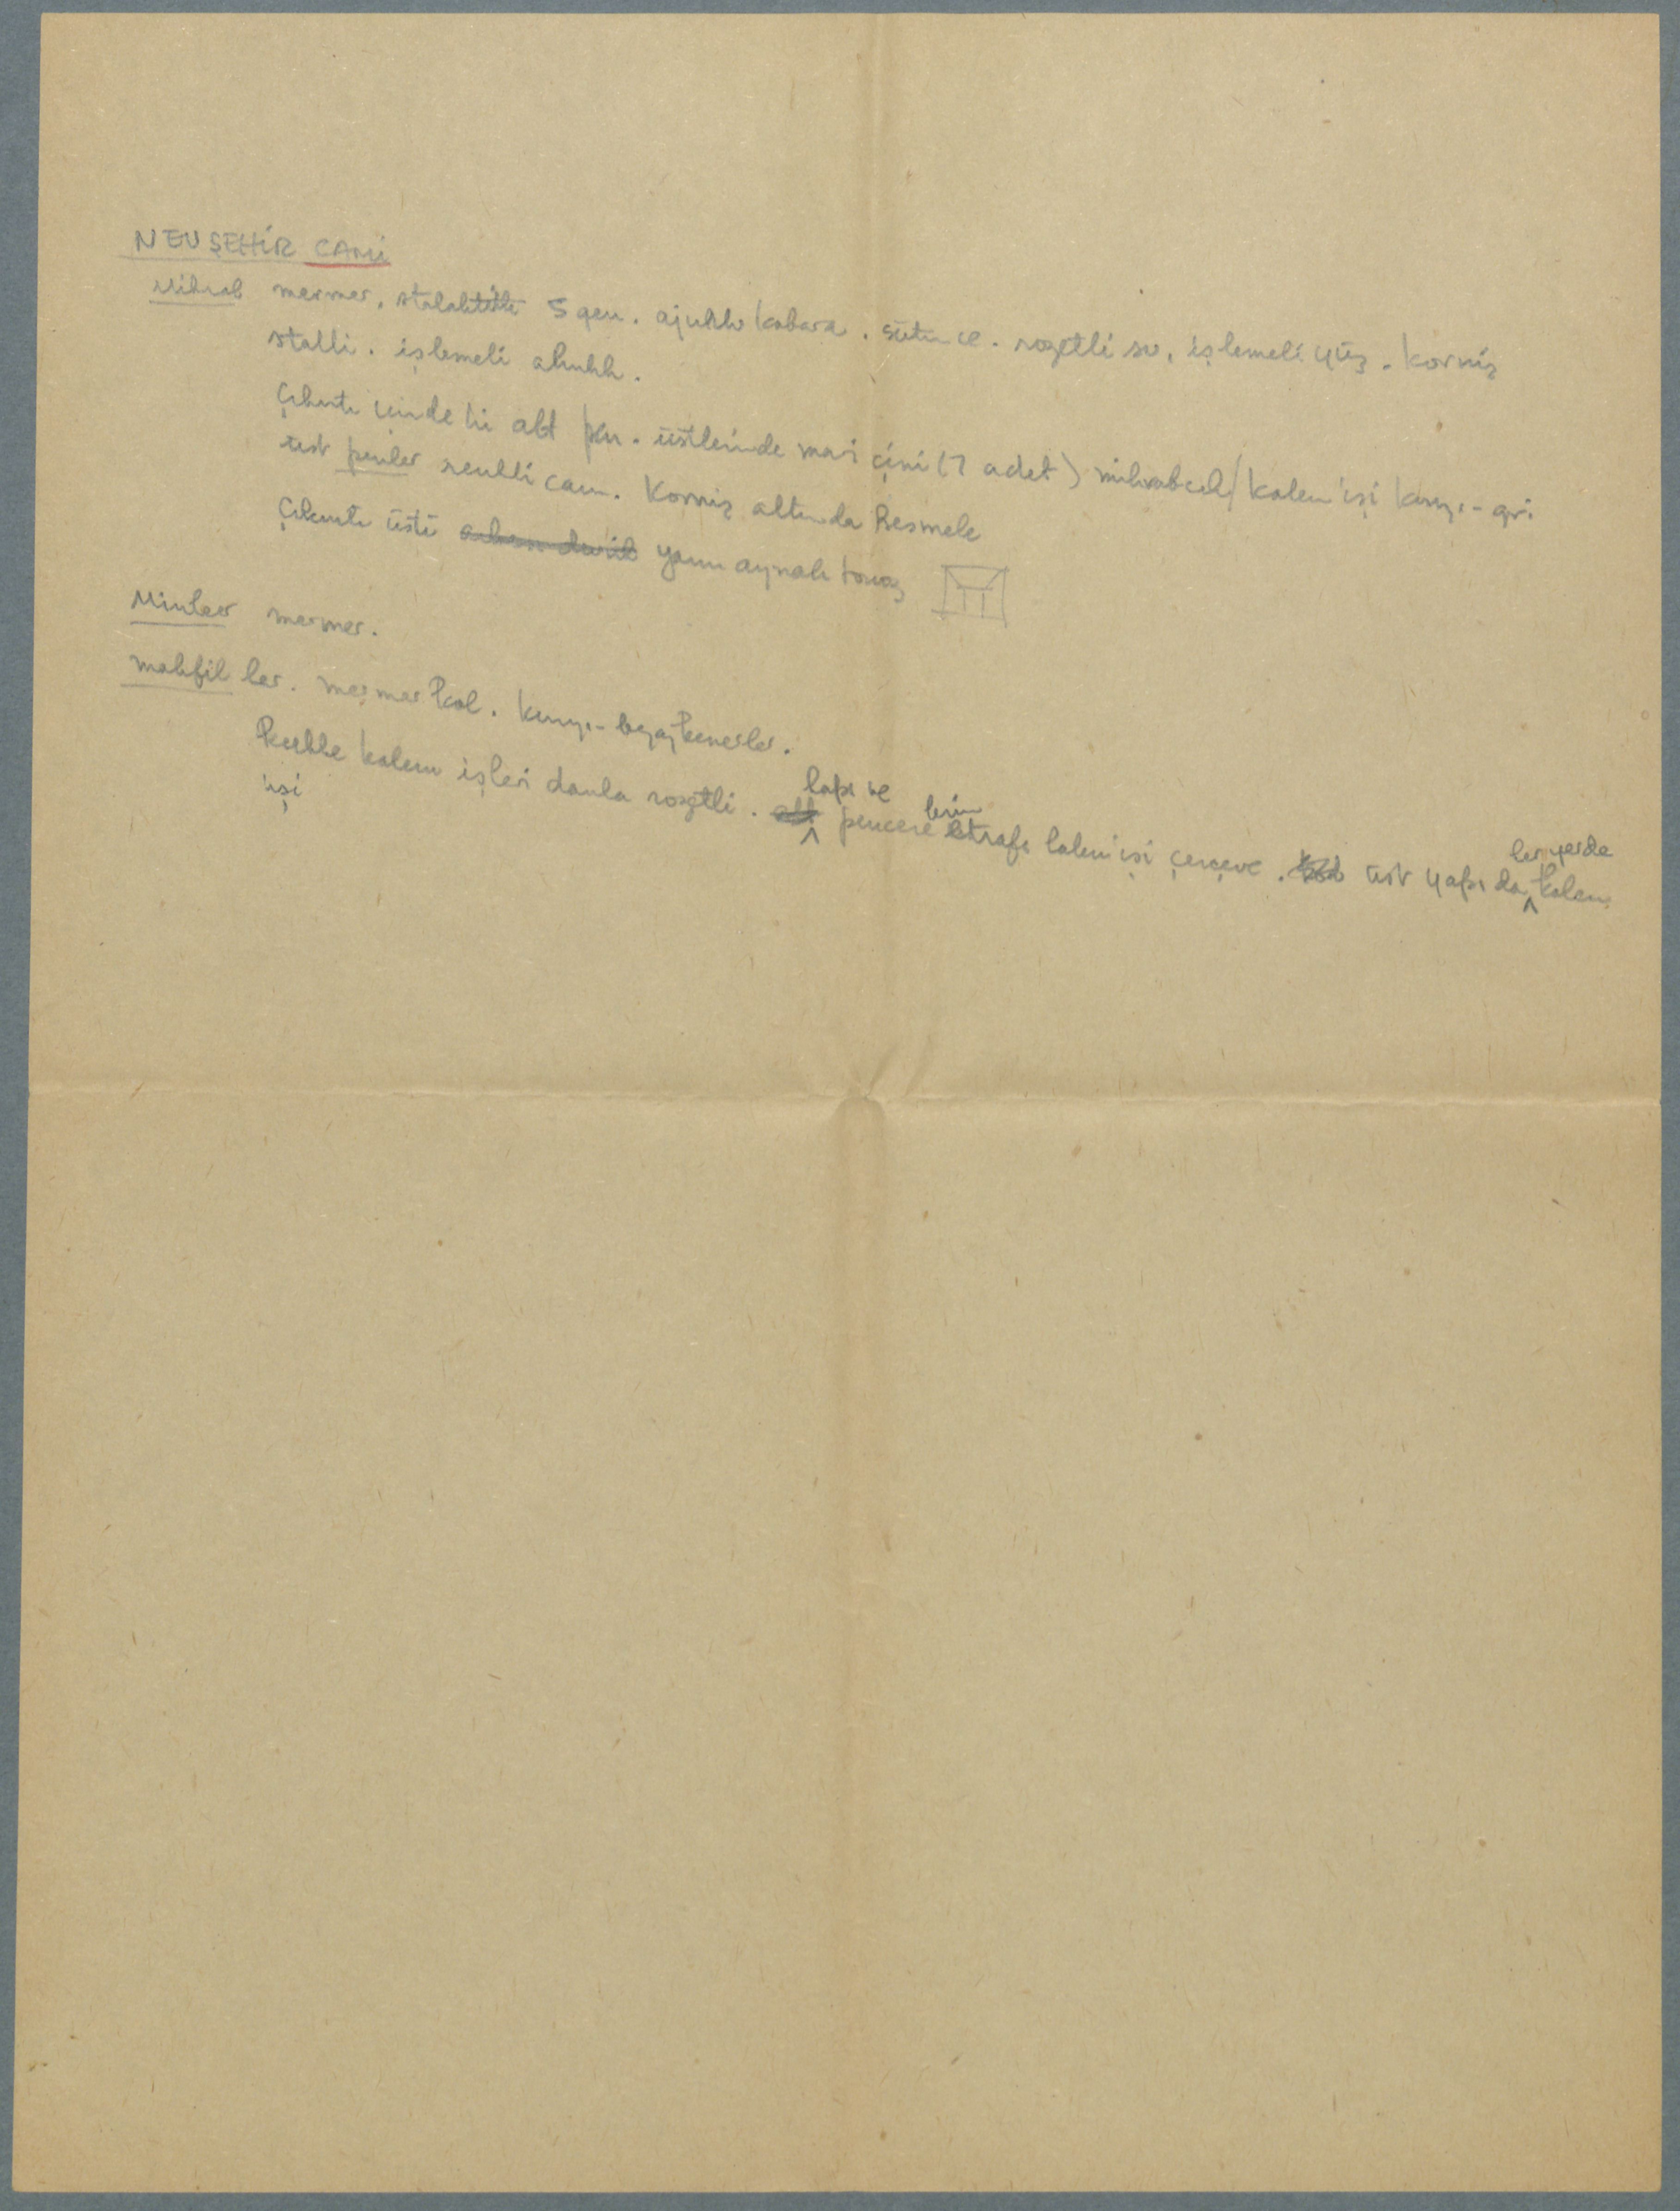 NEVŞEHİR CAMİ
Mihrab mermer. stalaktitli 5gen. ajurlu kabara. sütunce. rozetli su, işlemeli yüz. korniş
statli. işlemeli alınlık.
Çıkıntı içindeki alt pen. üstlerinde mavi çini (7 adet) mihrabcık/kalem işi kırmızı-gri
üst penler renkli cam. Korniş altında Besmele
Çıkıntı üstü yarım aynalı tonoz
Minber mermer.
mahfiller. mermer kol. kırmızı-beyaz kemerler.
Kubbe kalem işleri damla rozetli. kapı ve pencerelerin etrafı kalem işi çerçeve. üst yapıda her yerde kalem
işi